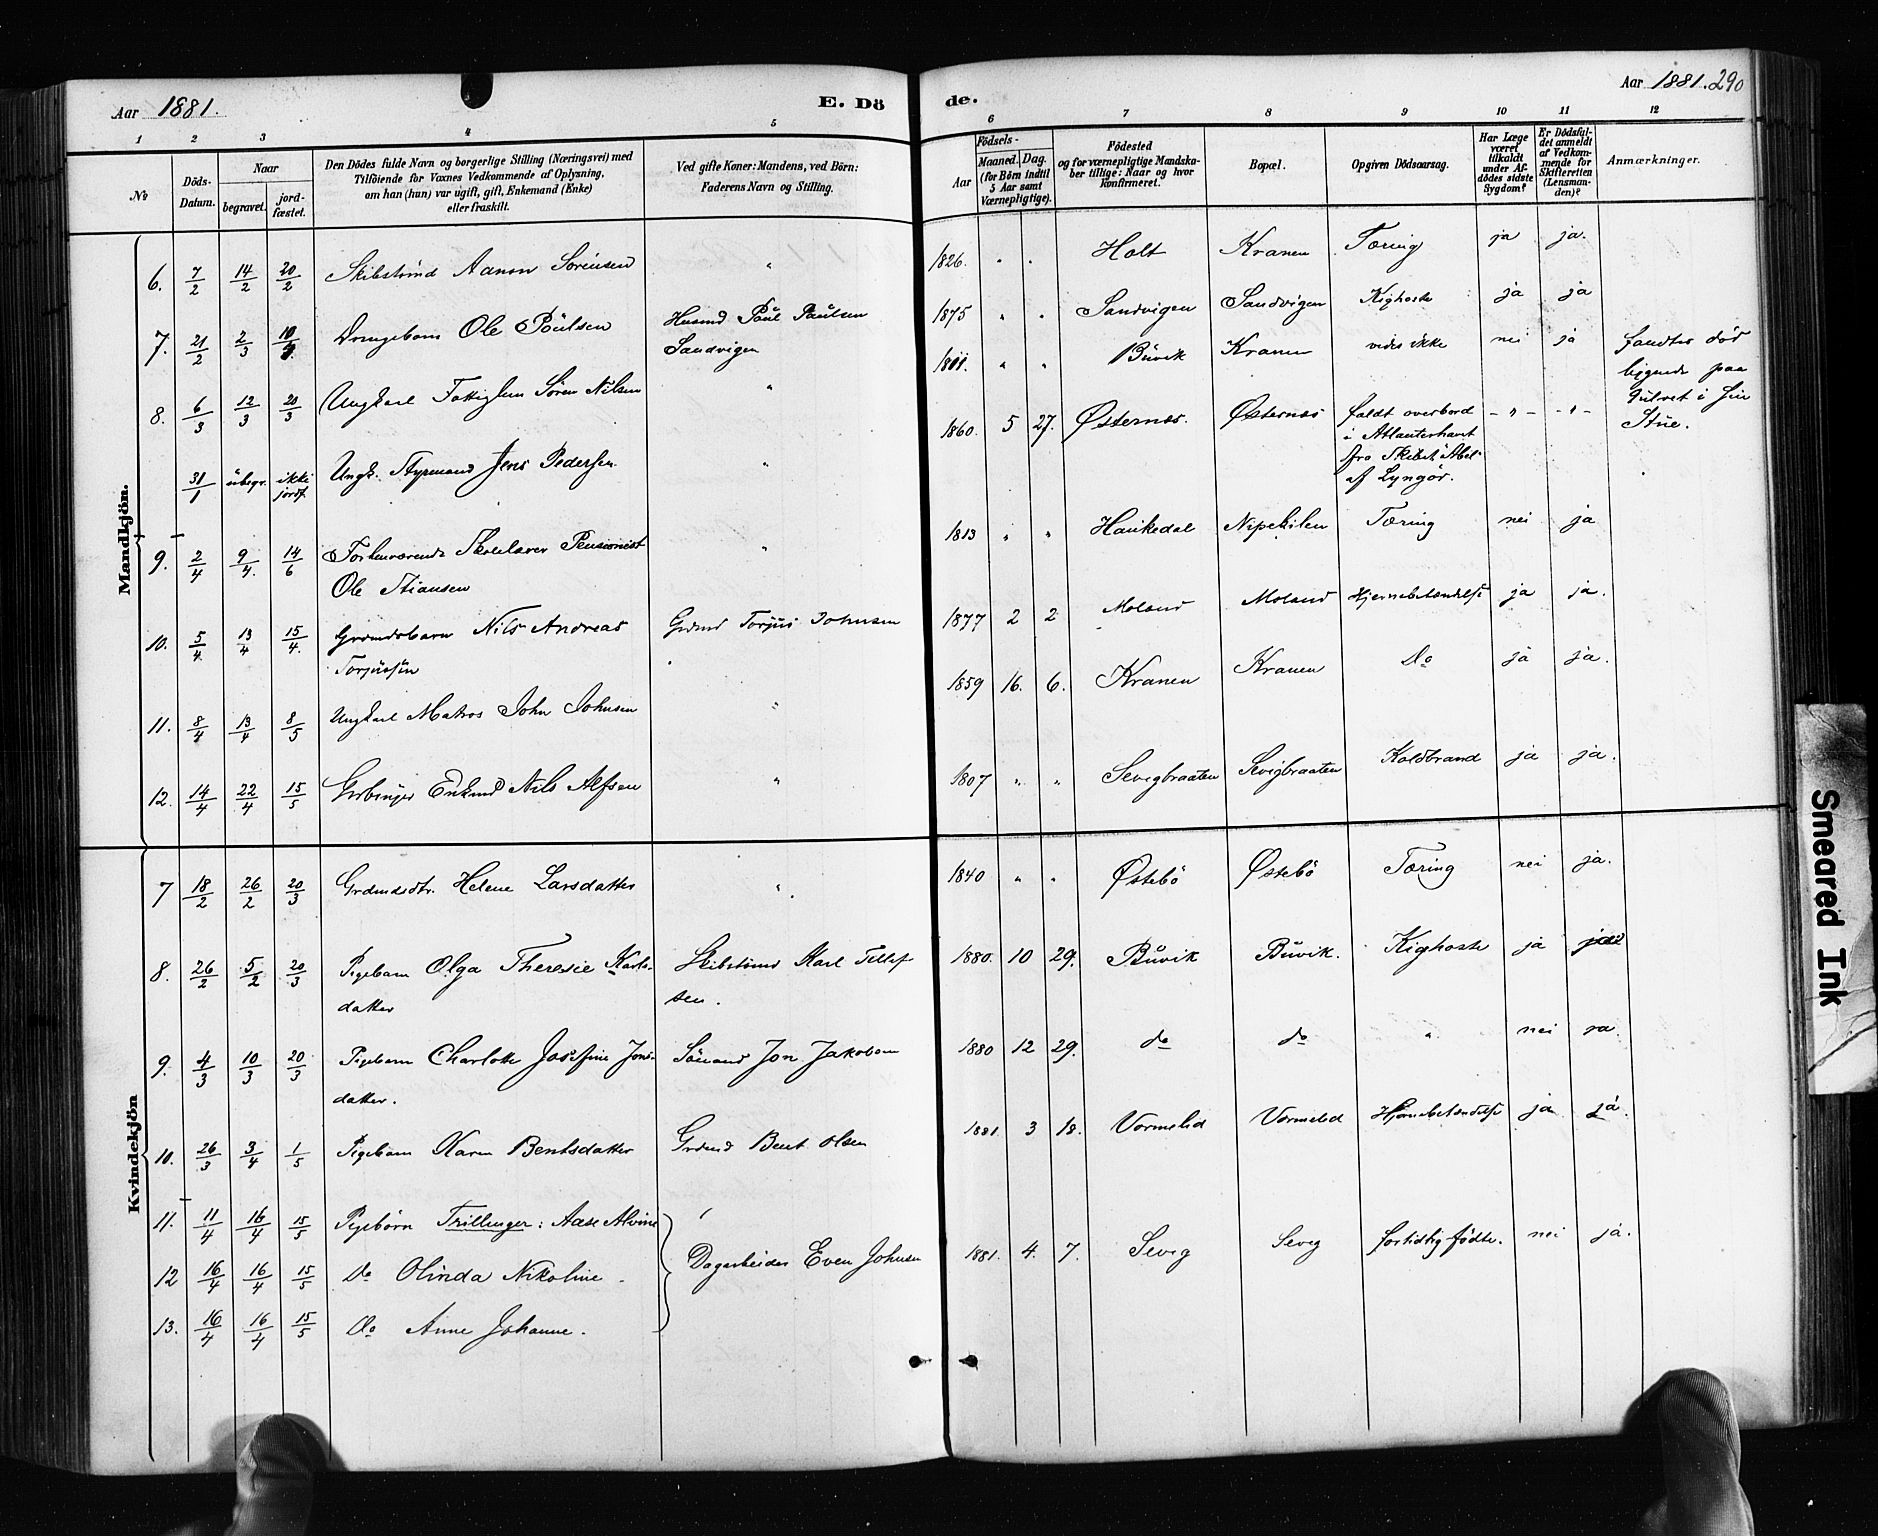 Aar 1881.
E. Dö
de.
Aar 1881. 290
1 2 3 4 5 6 7 8 9 10 11 12
No
Döds-Datum.
Naar
begravet.
jordfæstet.
Den Dödes fulde Navn og borgerlige Stilling (Næringsvei) med
Tilföiende for Voxnes Vedkommende af Oplysning,
om han (hun) var ugift, gift, Enkemand (Enke)
eller fraskilt.
Ved gifte Koner: Mandens, ved Börn:
Faderens Navn og Stilling.
Födsels-
Aar
Maaned. Dag.
(for Börn indtil
5 Aar samt
Værnepligtige).
Födested
og for værnepligtige Mandska-
ber tillige: Naar og hvor
konfirmeret.
Bopæl.
Opgiven Dödsaarsag.
Har Læge
været
tilkaldt
under Af-
dödes sidste
Sygdom?
Er Dödsful-
det anmeldt
af Vedkom-
mende for
Skifteretten
(Lensman-
den)?
Anmærkninger.
Mandkjön.
6. 7/2 14/2 20/2 Skibstömd Aanon Sörensen " 1826. " " Holt Kranen Tæring ja ja.
7. 21/2 2/3 Drengebarn Ole Poulsen Husmd Poul Paulsen
Sandvigen 1875 " " Sandvigen Sandvigen Kighoste ja ja
8. 6/3 12/3 20/3 Ungkarl Fattiglem Sören Nilsen " 1811. " " Buvik Kranen vides ikke nei ja fandtes död
liggende paa
Gulvet i sin
Stue.
31/1 ubegr. ikke
jordf. Ungk. Styrmand Jens Pedersen. " 1860. 5 27. Östernæs. Östernæs faldt overbord
i Atlanterhavet
fra Skibet "Abel"
af Lyngör. - " - - " -
9. 2/4 9/4. 14/6 Forhenværende Skolelærer Pensionist
Ole Stiansen " 1813 " " Haukedal Nipekilen Tæring nei ja
10. 5/4 13/4 15/4. Grdmdsbarn Nils Andreas
Torjussen Grdmd Torjus Johnsen 1877 2 2 Moland Moland Hjernebetændelse ja ja.
11. 8/4 13/4 8/5 Ungkarl Matros John Johnsen " 1859 16. 6. Kranen Kranen Do ja ja.
12. 14/4 22/4 15/5 Enkmd Nils Alfsen " 1807 " " Sevigbraaten Sevigbraaten Koldbrand ja ja.
Kvindekjön
7 18/2 26/2 20/3 Grdmdsdtr. Helene Larsdatter " 1840 " " Östebö Östebö Tæring nei ja.
8. 26/2 5/2 20/3 Pigebarn Olga Theresie Karls-
datter Skibstömd Karl Tellef
sen. 1880. 10 29. Buvik Buvik. Kighoste ja
9. 4/3 10/3 20/3 Pigebarn Charlotte Josefine Jons-
datter. Sömand Jon Jakobsen 1880 12 29. do do " nei ja.
10. 26/3 3/4 1/5 Pigebarn Karen Bentsdatter Grdmd Bent Olsen 1881. 3 18. Vormelid Vormelid Hjernebetændelse ja ja.
11. 11/4 16/4 15/5 Pigebörn Trillinger: Aase Alvine
12 16/4 16/4 15/5 Do Olinda Nikoline.
13. 16/4 16/4 15/5 Do Anne Johanne.
Dagarbeider Even Johnsen 1881. 4. 7. Sevig Sevig fortidlig födte. nei ja.
Smeared Ink